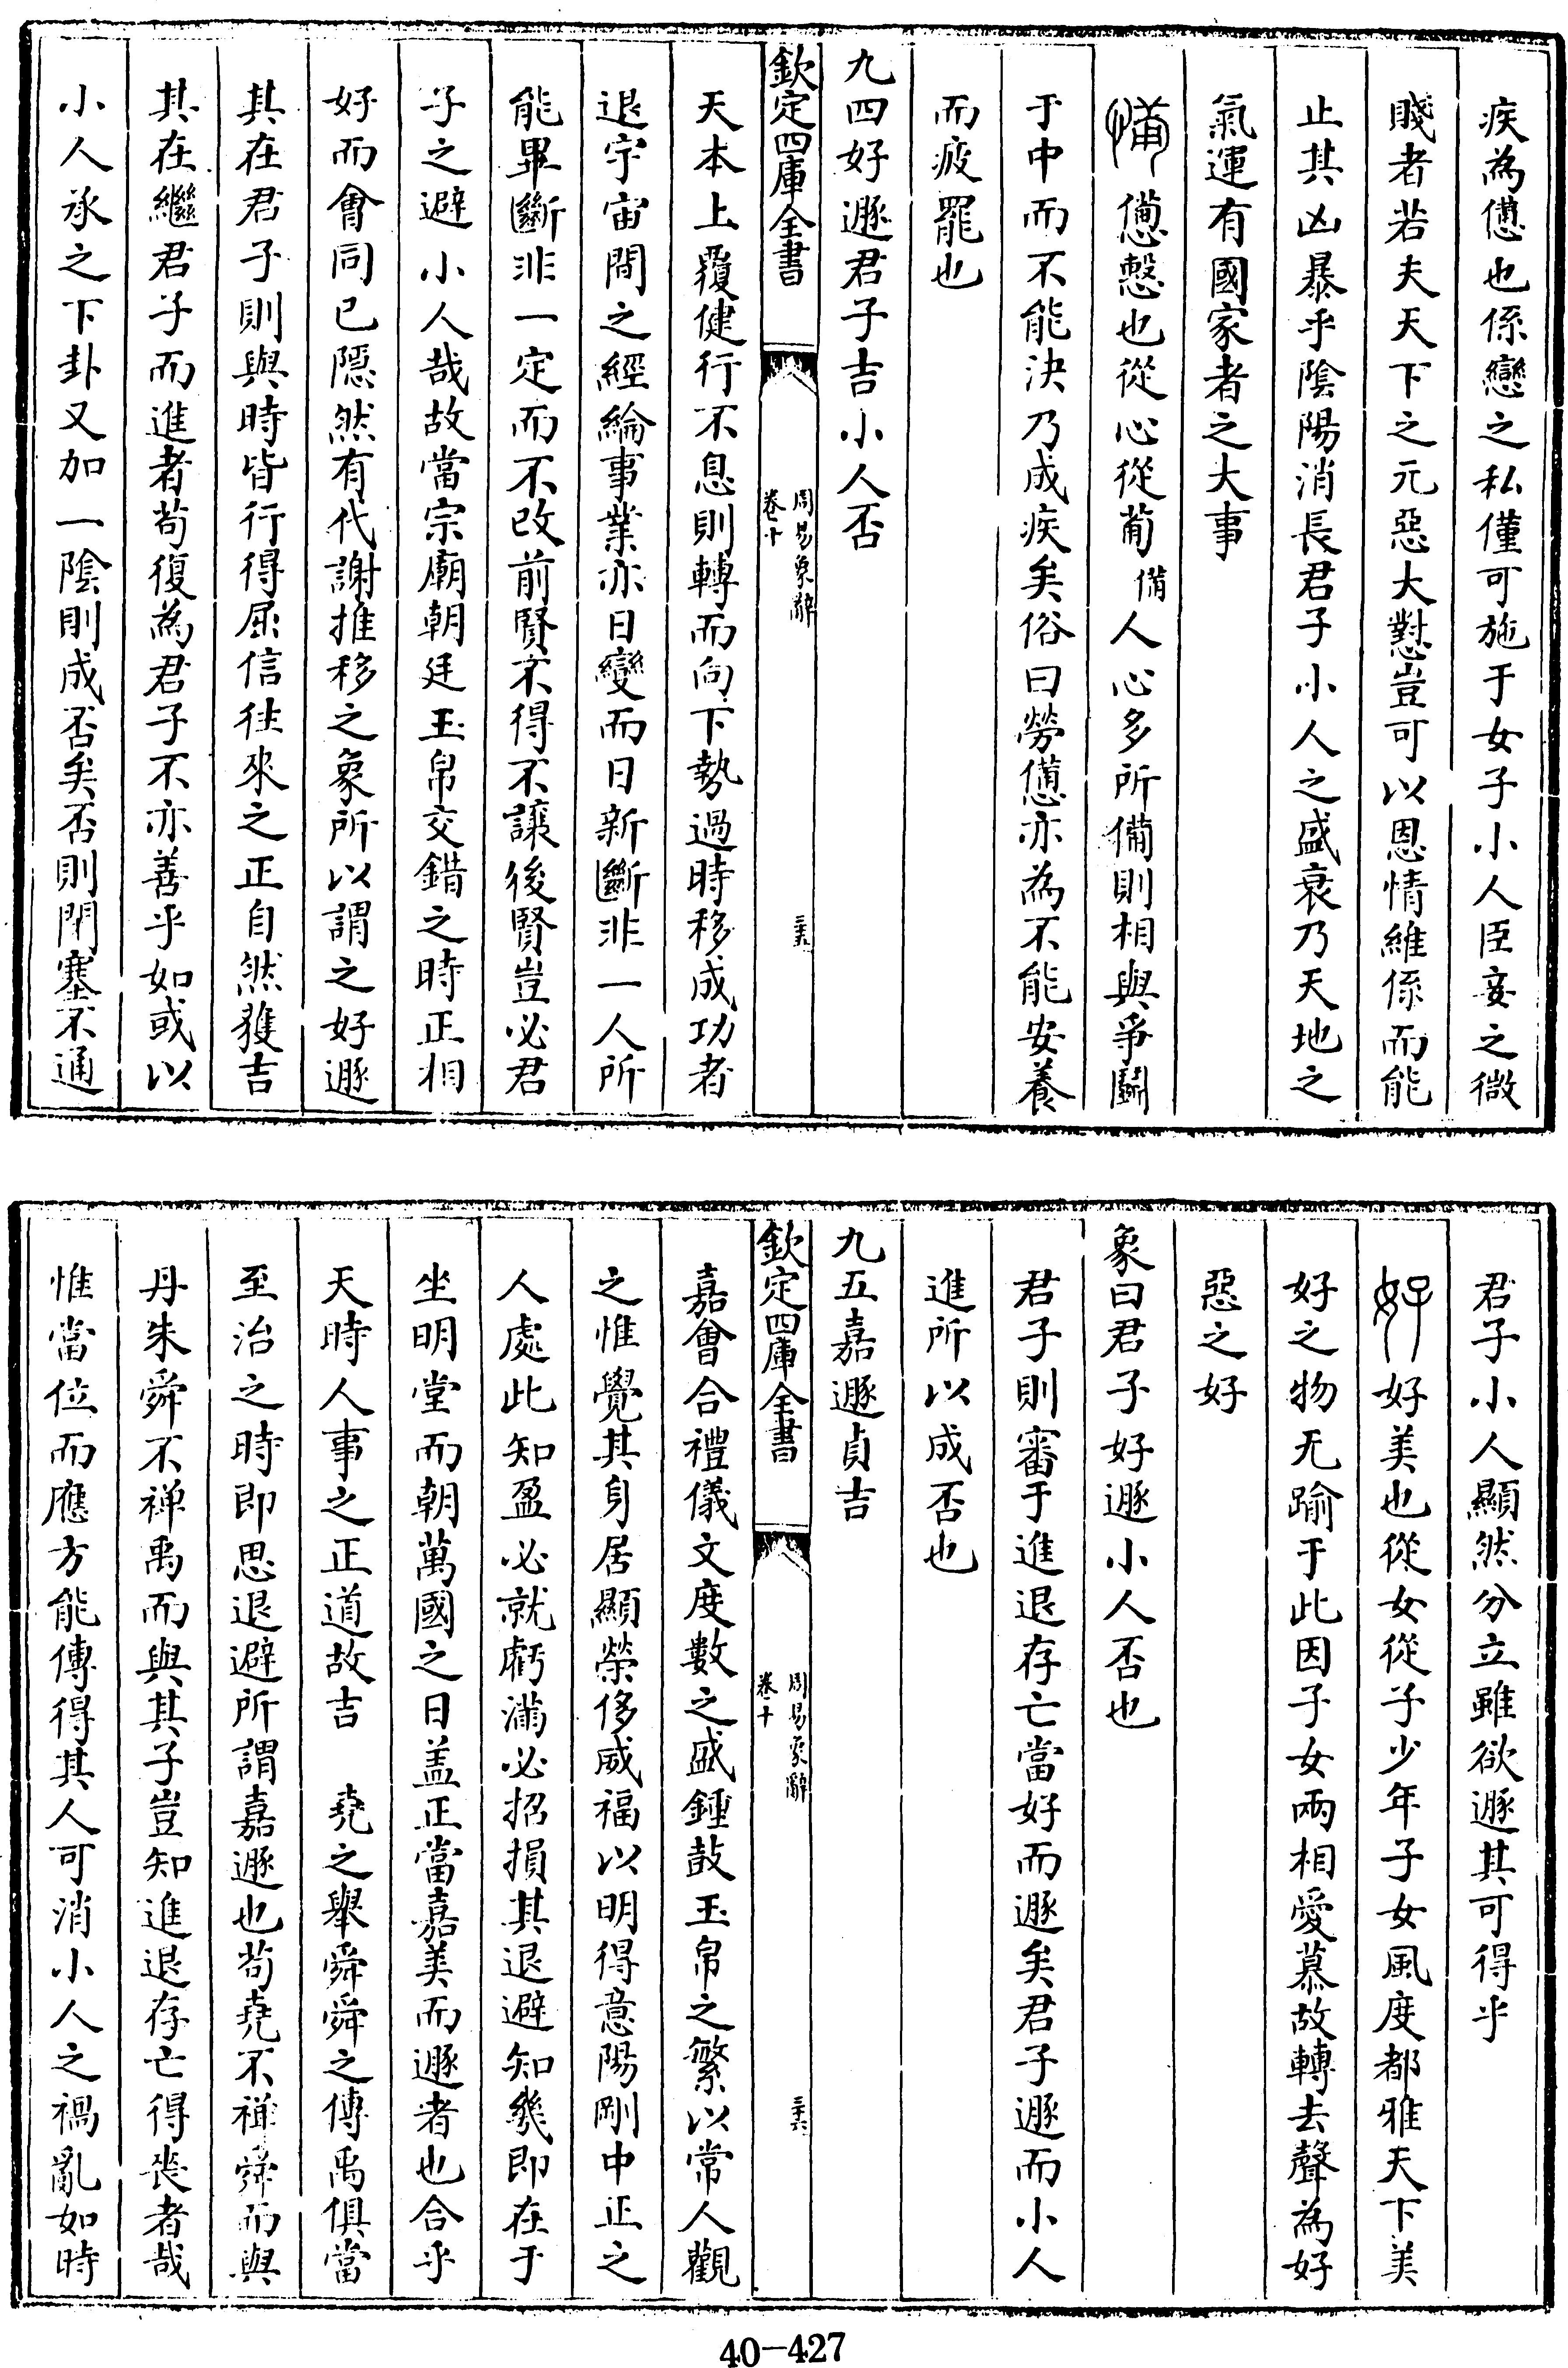 疾為憊也係戀之私僅可施于女子小人臣妾之微
賤者若夫天下之元惡大懟豈可以恩情維係而能
止其凶暴乎陰陽消長君子小人之盛衰乃天地之
氣運有國家者之大事
憊憊㦢也從心從𤰈備人心多所備則相與爭鬬
于中而不能決乃成疾矣俗曰勞憊亦為不能安養
而疲罷也
九四好遯君子吉小人否
欽定四庫全書
周易象辭
卷十
三五
天本上覆健行不息則轉而向下勢過時移成功者
退宇宙間之經綸事業亦日變而日新斷非一人所
能畢斷非一定而不改前賢不得不讓後賢豈必君
子之避小人哉故當宗廟朝廷玉帛交錯之時正相
好而會同已隱然有代謝推移之象所以謂之好遯
其在君子則與時皆行得屈信往來之正自然獲吉
其在繼君子而進者苟復為君子不亦善乎如或以
小人承之下卦又加一陰則成否矣否則閉塞不通
君子小人顯然分立雖欲遯其可得乎
好好美也從女從子少年子女風度都雅天下美
好之物无踰于此因子女兩相愛慕故轉去聲為好
惡之好
象曰君子好遯小人否也
君子則審于進退存亡當好而遯矣君子遯而小人
進所以成否也
九五嘉遯貞吉
欽定四庫全書
周易象辭
卷十
三六
嘉會合禮儀文度數之盛鍾鼓玉帛之繁以常人觀
之惟覺其身居顯榮侈威福以明得意陽剛中正之
人處此知盈必就虧滿必招損其退避知幾即在于
坐明堂而朝萬國之日盖正當嘉美而遯者也合乎
天時人事之正道故吉　堯之舉舜舜之傳禹俱當
至治之時即思退避所謂嘉遯也苟堯不禪舜而與
丹朱舜不禪禹而與其子豈知進退存亡得喪者哉
惟當位而應方能傳得其人可消小人之禍亂如時
40-427